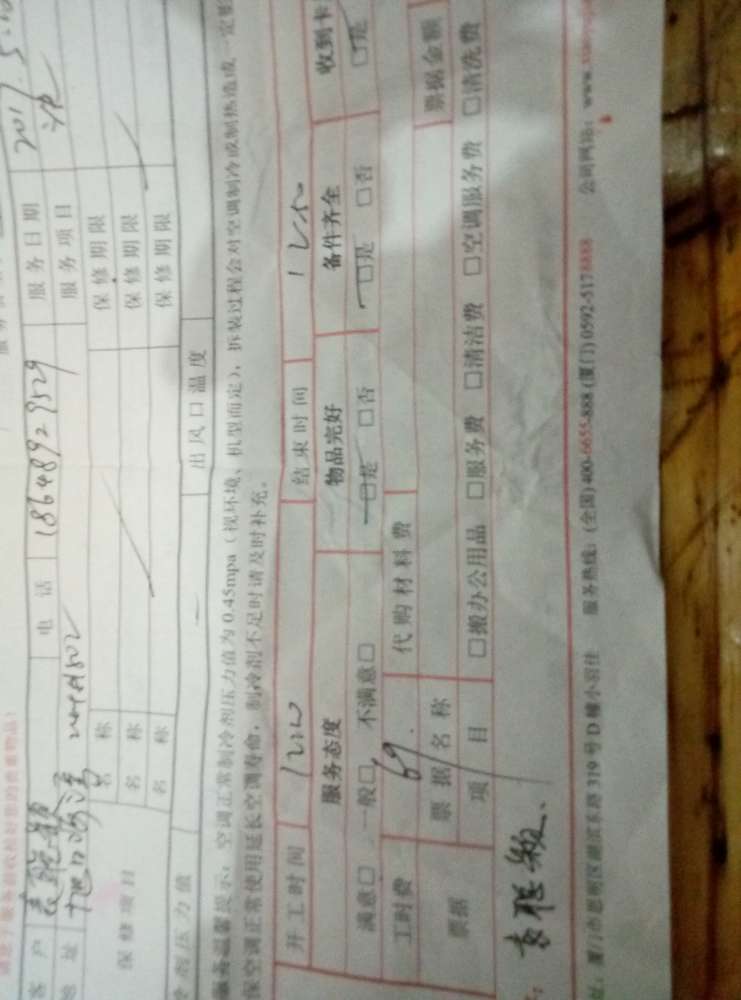 请您于服务前收检好您的贵重物品!
客户 电话 18648929529 服务日期 2017.5.
地址 服务项目
保修项目 名称 保修期限
名称 保修期限
名称 保修期限
剂压力值 出风口温度
服务温馨提示:空调正常制冷剂压力值为0.45mpa(视环境、机型而定),拆装过程会对空调制冷或制热造成一定
保空调正常使用延长空调寿命,制冷剂不足时请及时补充。
开工时间 1210 结束时间
服务态度 物品完好 备件齐全 收到卡
满意□ 一般□ 不满意□ □是 □否 □是 □否 □是
工时费 69. 代购材料费
票据 票据名称 票据金额
项目 □搬办公用品 □服务费 □清洁费 □空调服务费 □清洗费
址:厦门市思明区湖滨东路319号D幢小羽佳 服务热线:(全国)400-6655-888(厦门)0592-5178888 公司网站:www.